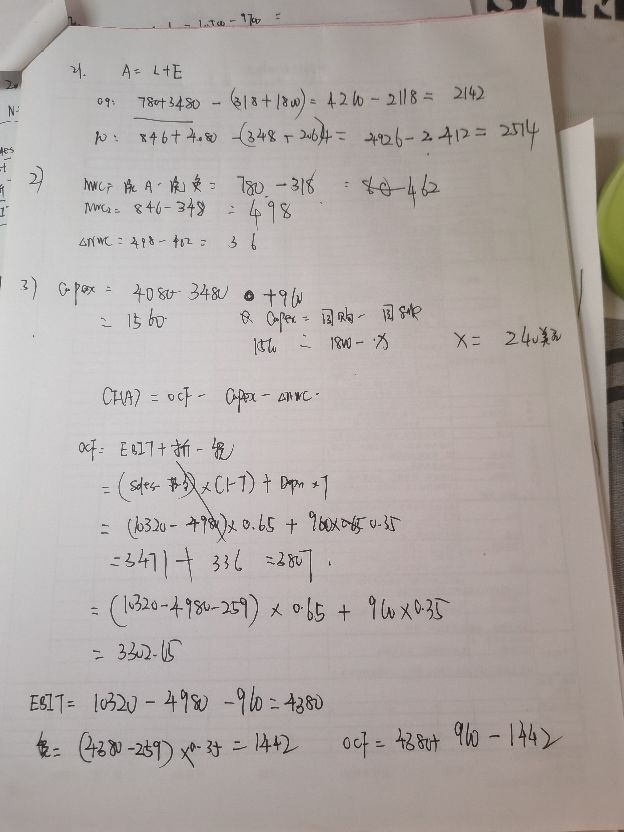 21. A = L+E
09: 780+3480 - (318+1800) = 4260 - 2118 = 2142
10: 846+4080 - (348+2064 = 4926 - 2412 = 2514
2) NWC= 流A - 流负 = 780 - 318 = 462
NWC2 = 846-348 = 498
ΔNWC = 498 - 462 = 36
3) Capex = 4080 - 3480 +960
= 1560 Capex = 固购 - 固
1560 = 1800 - X X = 240美元
CF(A) = OCF - Capex - ΔNWC.
OCF = EBIT + 折 - 税
= (Sales- ) × (1-T) + Depn × T
= (10320 - 4980) × 0.65 + 960× 0.35
= 3471 + 336 = 3807.
= (10320 - 4980 - 259) × 0.65 + 960 × 0.35
= 3302.65
EBIT = 10320 - 4980 - 960 = 4380
税 = (4380 - 259) × 0.35 = 1442 OCF = 4380+ 960 - 1442